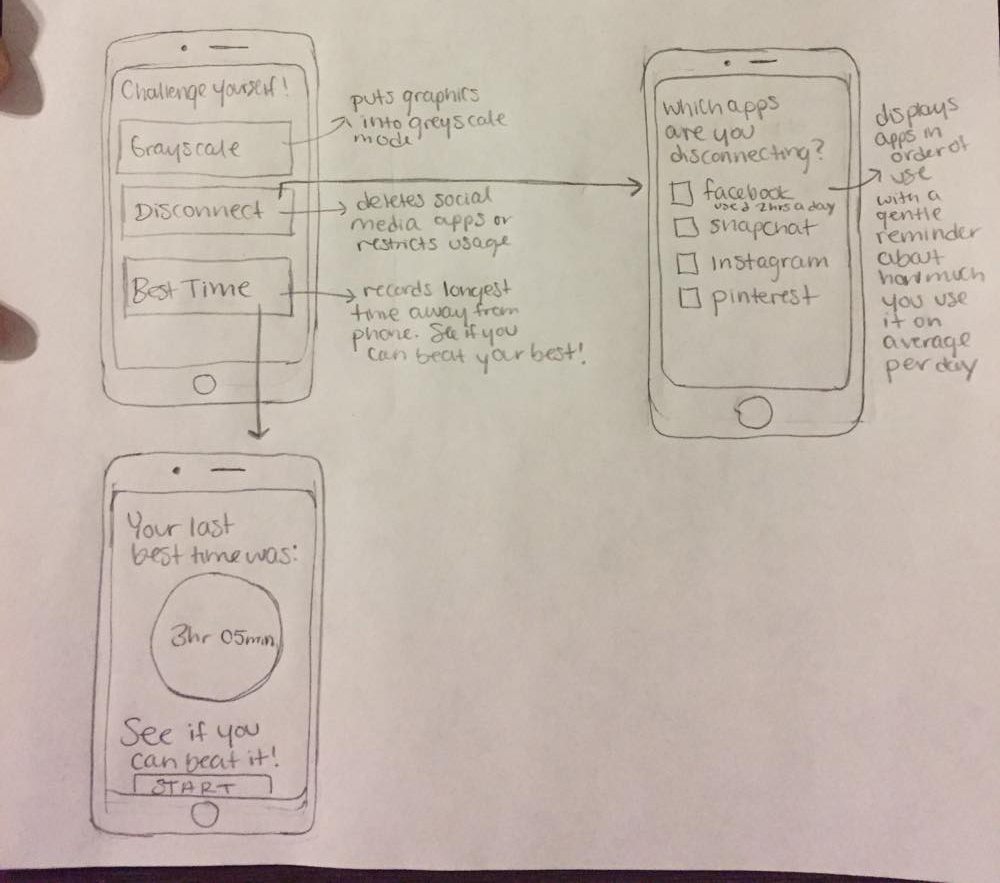 Challenge yourself!
Grayscale
Disconnect
Best Time
puts graphics
into greyscale
mode
deletes social
media apps or
restricts usage
records longest
time away from
phone. See if you
can beat your best!
which apps
are you
disconnecting?
facebook
used 2hrs a day
snapchat
instagram
pinterest
displays
apps in
order of
use
with a
gentle
reminder
about
how much
you use
it on
average
per day
Your last
best time was:
3hr 05min
See if you
can beat it!
START